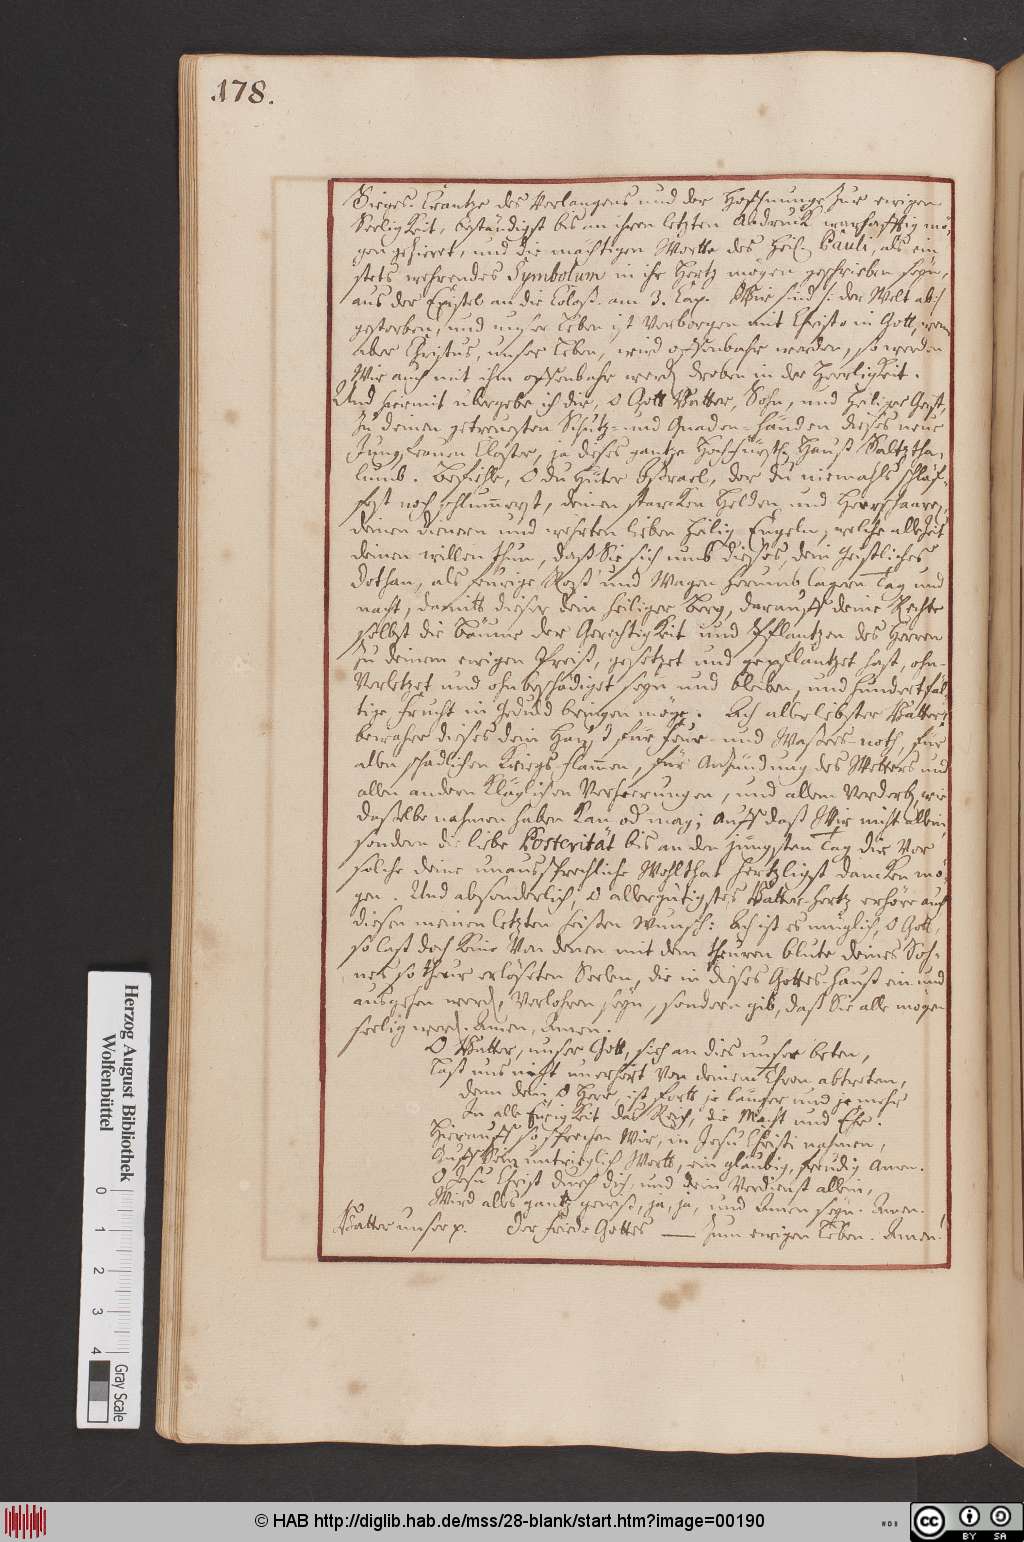 178.
Sieges-Crantze des Verlangens und der Hoffnunge zur ewigen
Seeligkeit, beständigst bis an ihren letzten Andruck warhafftig mö-
gen gezieret, und die mächtigen Wortte des Heil. Pauli, als ein
stets wehrendes Symbolum in ihr Hertz mögen geschrieben seyn,
aus der Epistel an die Coloß. am 3. Cap. Wir sind /: der Welt ab :/
gestorben, und unser Leben ist verborgen mit Christo in Gott, wenn
aber Christus, unser Leben, wird offenbahr werden, so werden
Wir auch mit ihm offenbahr werd. droben in der Herrligkeit.
Und hiermit übergebe ich dir, O Gott Vatter, Sohn, und Heiliger Geist,
In deinen getreuesten Schutz- und Gnaden-Händen dieses neue
Jungfrauen Closter, ja dieses gantze Hochfürstl. Hauß Saltztha-
lumb. Befiehle, O du Hüter Israel, der du niemahls schläf-
fest noch schlummerst, deinen starcken Helden und Heerschaaren,
deinen dienern und wehrten lieben Heilig. Engeln, welche allezeit
deinen willen thun, daß Sie sich umb dieses, dein geistliches
Dothan, als feurige Roß und Wagen herumb lagern Tag und
nacht, damitt dieser dein heiliger Berg, darauff deine Rechte
selbst die Bäume der Gerechtigkeit und Pflantzen des Herren
zu deinem ewigen Preiß, gesetzet und gepflantzet hast, ohn-
Verletzet und ohnbeschädiget seyn und bleiben, und hundertfäl-
tige Frucht in Gedult bringen möge. Ach allerliebster Vatter!
bewahre dieses dein Hauß für Feur- und Wassers-noth, für
allen schädlichen Kriegs-flammen, für Anzündung des Wetters und
allen andern Kläglichen Verheerungen, und allem Verderb, wie
daßelbe nahmen haben kan od. mag; auff daß Wir nicht allein,
sondern die liebe Posterität bis an den jüngsten Tag dir vor
solche deine unaussprechliche Wohlthat hertzligst dancken mö-
gen. Und absonderlich, O allergütigstes Vatter-Hertz erhöre auch
diesen meinen letzten heißen Wunsch: Ach ist es müglich, O Gott,
so laß doch keine Von denen mit dem theuren blute deines Soh-
nes so theur erlöseten Seelen, die in dieses Gottes-Hauß ein- und
ausgehen werd. Verlohren seyn, sondern gib, daß Sie alle mögen
seelig werd. Amen, Amen.
O Vatter, unser Gott, sieh an dies unser beten,
Laß uns nicht unerhört Von deinem Thron abtreten,
denn dein, O Herr, ist fort je länger und je mehr
In alle Ewigkeit das Reich, die Macht und Ehr.
Hierauff so sprechen Wir, in Jesu Christi nahmen,
Auff Sein untrieglich Wortt, ein gläubig, freudig Amen.
O Jesu Christ durch dich, und dein Verdienst allein,
Wird alles gantz gewiß, ja, ja, und Amen seyn. Amen.
Vatter unser p. Der Friede Gottes — zum ewigen Leben. Amen!
Herzog August Bibliothek
Wolfenbüttel
0 1 2 3 4
Gray Scale
© HAB http://diglib.hab.de/mss/28-blank/start.htm?image=00190
WDB
cc BY SA